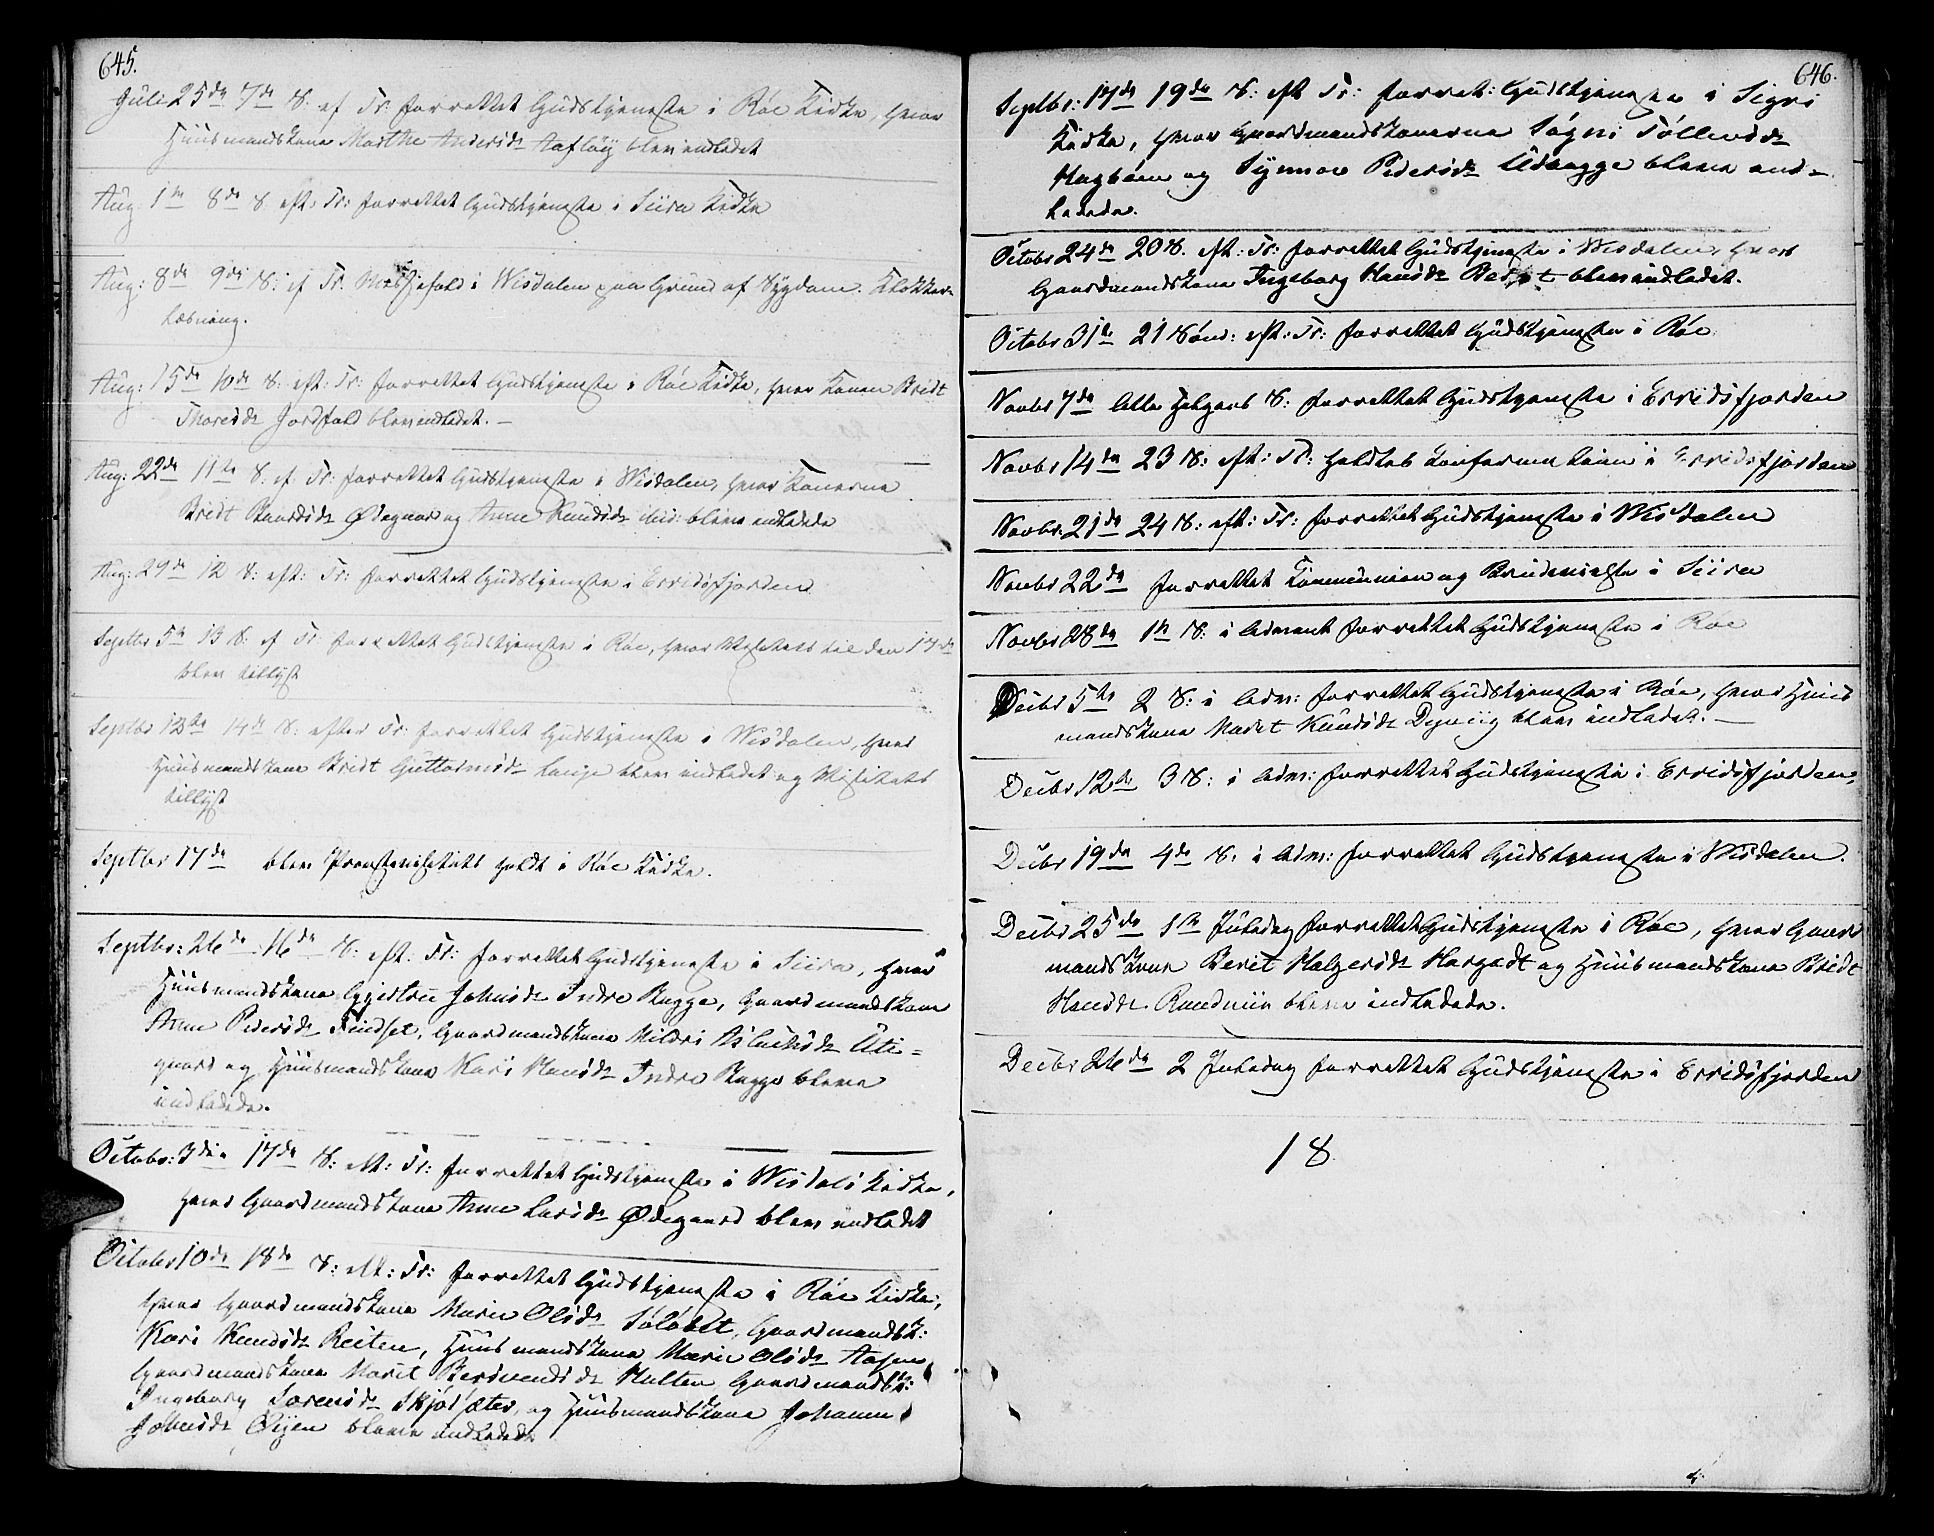 645.
Juli 25de 7de S. ef Tr: forrettet Gudstjeneste i Röe Kirke, hvor
Huusmandskone Marthe Andersdr Aafløy blev indledet
Aug. 1ste 8de S. eft: Tr: forrettet Gudstjeneste i Siira Kirke
Aug: 8de 9de S: ef Tr. Messefald i Wisdalen paa Grund af Sygdom. Klokker-
læsning.
Aug: 15de 10de S: eft: Tr: forrettet Gudstjeneste i Röe Kirke, hvor Konen Bridt
Thoresdr Jordfald blev indledet. —
Aug: 22de 11te S. ef Tr: forrettet Gudstjeneste i Wisdalen, hvor Konerne
Bridt Baardsdr Ødegaard og Anne Knudsdr ibid: bleve indledede
Aug: 29de 12 S: eft: Tr: forrettet Gudstjeneste i Erridsfjorden
Septbr 5te 13 S: ef Tr: forrettet Gudstjeneste i Röe, hvor Visitats til den 17de
blev tillyst
Septbr 12te 14de S: efter Tr: forrettet Gudstjeneste i Wisdalen, hvor
Huusmandskone Bridt Guttormsdr Lange blev indledet og Visitats
tillyst
Septbr 17de blev Provstevisitats holdt i Röe Kirke.
Septbr: 26de 16de S: eft. Tr: forrettet Gudstjeneste i Siira, hvor
Huusmandskone Gjertru Johnsdr Indre Bugge, Gaardmandskone
Anne Pedersdr Findset, Gaardmandskone Mildri Aslaksdr Uti-
gaard og Huusmandskone Kari Hansdr Indre Bugge bleve
indledede.
Octobr: 3die 17de S: eft: Tr: forrettet Gudstjeneste i Wisdals Kirke,
hvor Gaardmandskone Anne Larsdr Ødegaard blev indledet
Octobr 10de 18de S: eft: Tr: forrettet Gudstjeneste i Röe Kirke,
hvor Gaardmandskone Marie Olsdr Sølsæt, Gaardmandsk:
Kari Knudsdr Reiten, Huusmandskone Marie Olsdr Aasen,
Gaardmandskone Marit Berdinusdr Hulten Gaardmandsk:
Ingeborg Sorensdr Skjørsæter, og Huusmandskone Johanne
Johnsdr Øijen bleve indledede
646.
Septbr: 17de 19de S: eft Tr: forret: Gudstjeneste i Sigri
Kirke, hvor Gaardmandskonerne Sögni Tøllevsdr
Hagbøen og Synnøv Pedersdr Udbugge bleve ind-
ledede.
Octobr 24de 20 S. eft: Tr: forrettet Gudstjeneste i Wisdalen, hvor
Gaardmandskone Ingeborg Hansdr blev indledet.
Octobr 31te 21 Sønd: eft: Tr: forrettet Gudstjeneste i Röe
Novbr 7de Alle Helgens S: forrettet Gudstjeneste i Erridsfjorden
Novbr 14de 23 S: eft: Tr: holdtes Confirmation i Erridsfjorden
Novbr: 21de 24 S: eft: Tr: forrettet Gudstjeneste i Wisdalen
Novbr 22de forrettet Communion og Brudevielse i Siira
Novbr 28de 1te S. i Advent forrettet Gudstjeneste i Röe
Decbr 5te 2 S: i Adv: forrettet Gudstjeneste i Röe, hvor Huus
mandskone Marit Knudsdr blev indledet. —
Decbr 12te 3 S: i Adv: forrettet Gudstjeneste i Erridsfjorden,
Decbr 19de 4de S. i Adv: forrettet Gudstjeneste i Wisdalen.
Decbr 25de 1ste Juledag forrettet Gudstjeneste i Röe, hvor Gaard
mandskone Berit Halgersdr Hargadt og Huusmandskone Bridt
Hansdr bleve indledede.
Decbr 26de 2 Juledag forrettet Gudstjeneste i Erridsfjorden
18